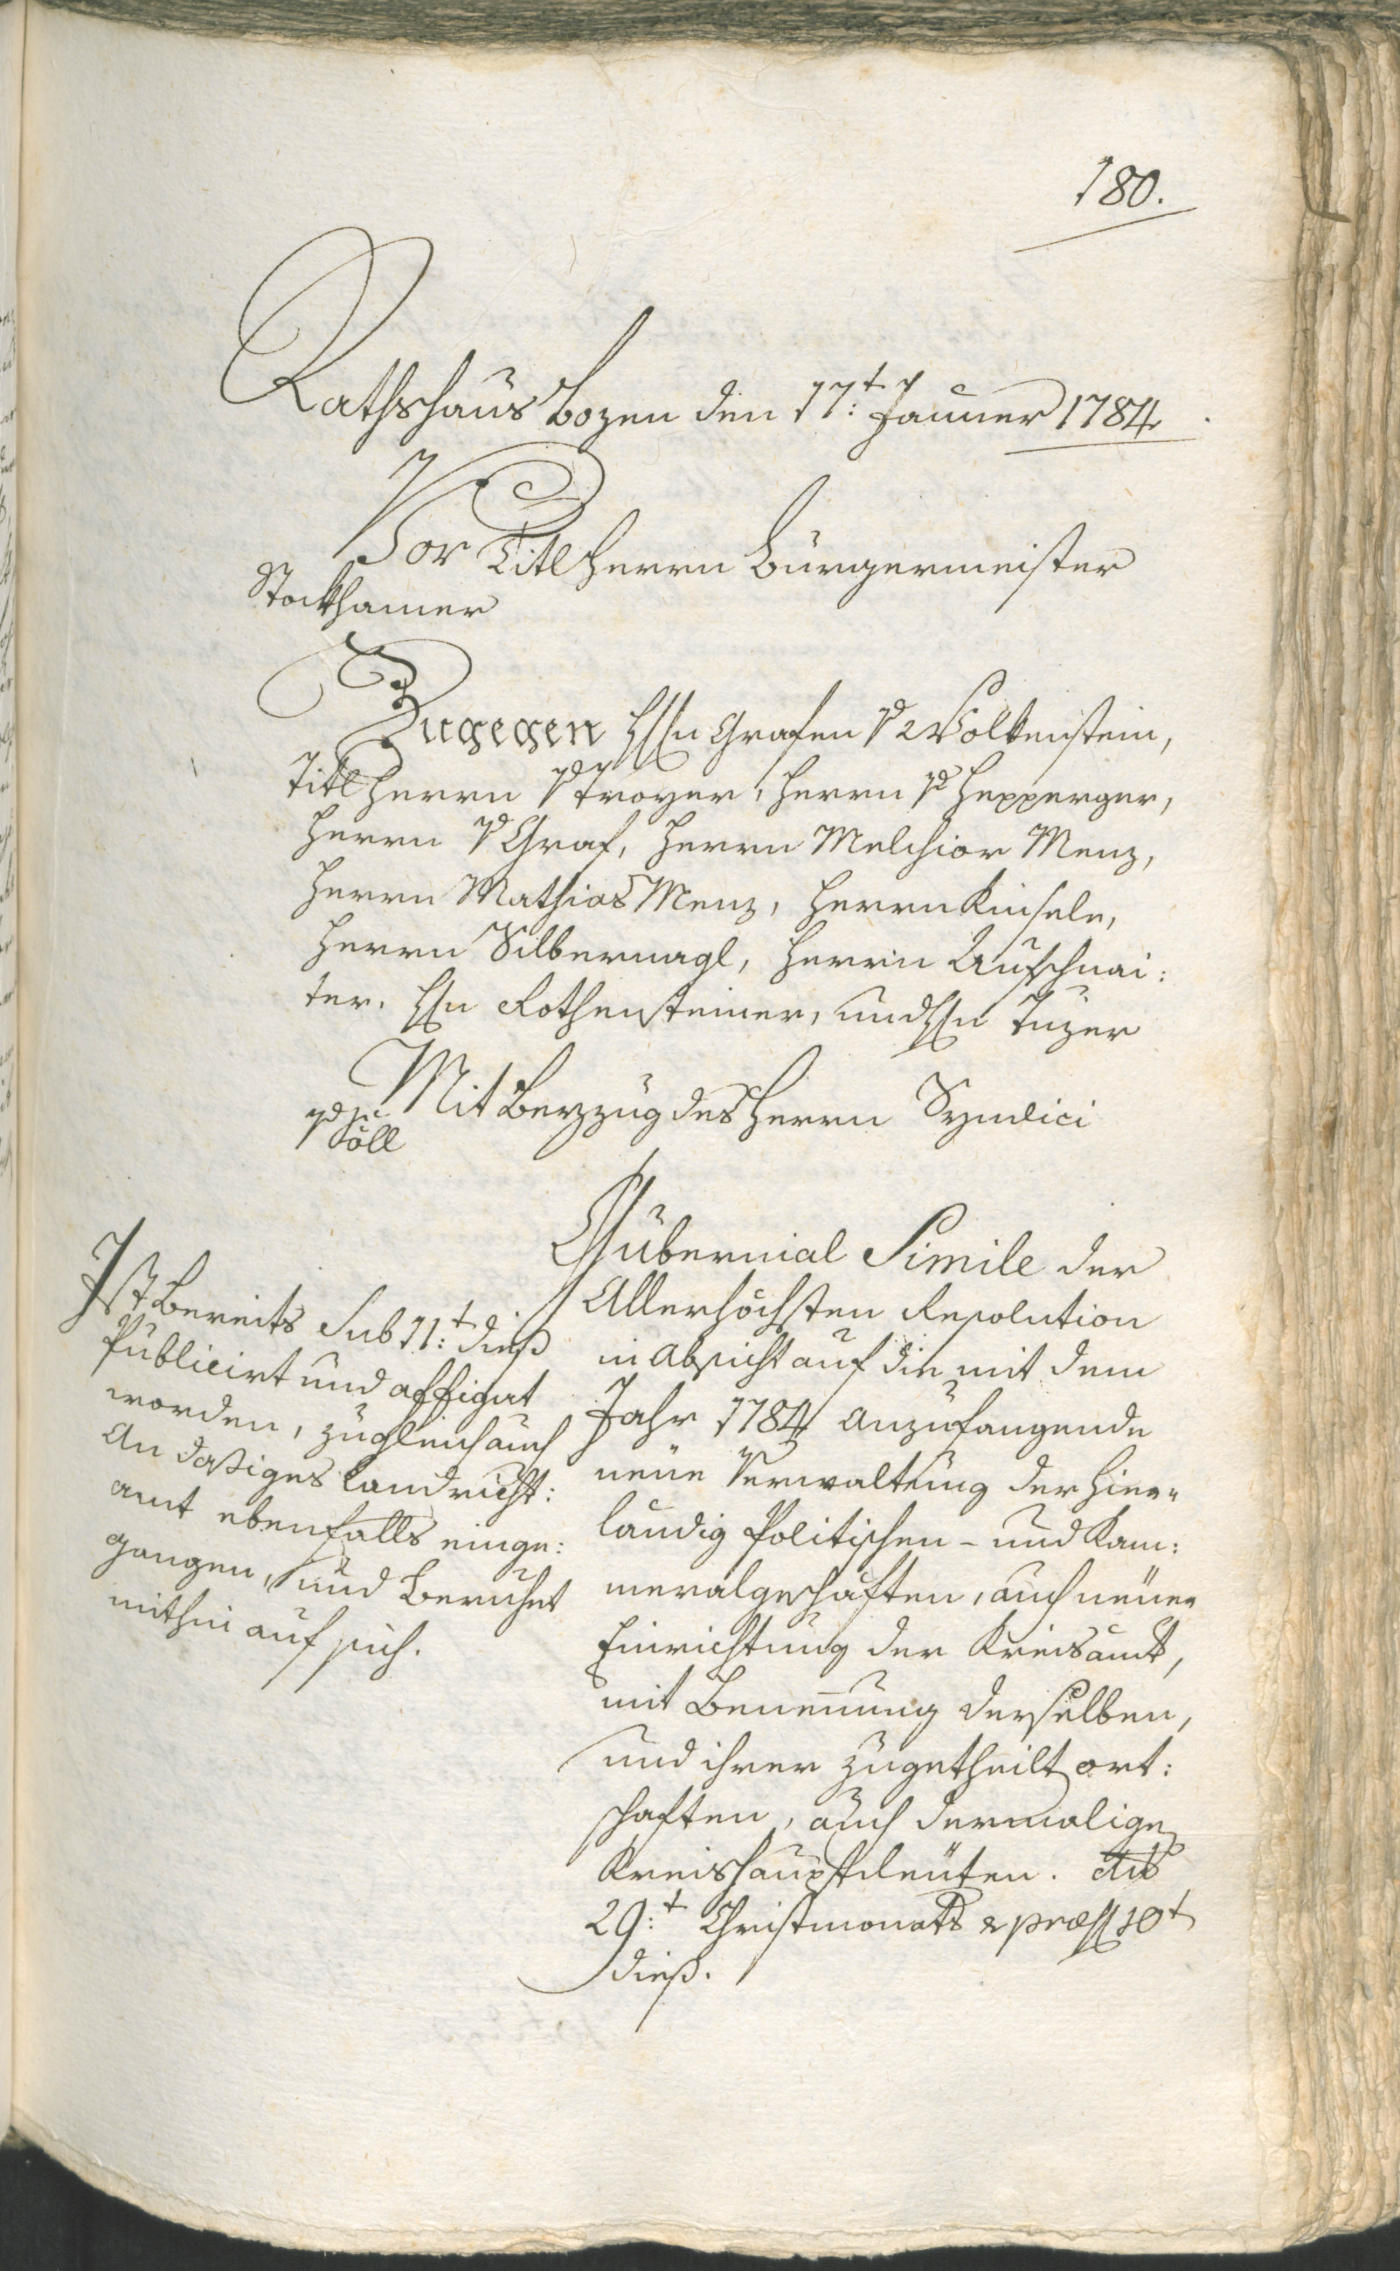 180.
Rathshaus Bozen den 17:t Jänner 1784
Vor Titl Herrn Bürgermeister
Stockhamer
Zugegen HHn Grafen v Wolkenstein,
Titl Herrn v Troyer, Herrn v Hepperger,
Herrn v Graf, Herrn Melchior Menz,
Herrn Mathias Menz, Herrn Kinsele,
Herrn Silbernagl, Herrn Aufschnai:
ter. Hn Rothensteiner, und Hn Tuzer
Mit Beyzug des Herrn Syndici
v Söll
Ist bereits sub 11:t dieß
publicirt und affigirt
worden, zugleich auch
an dasiges Landricht:
amt ebenfalls einge:
gangen, und beruhet
mithin auf sich.
Gubernial Simile der
Allerhöchsten Resolution
in Absicht auf die mit dem
Jahr 1784 anzufangende
neue Verwaltung der hier=
ländig Politischen- und Kam:
meralgeschäften, auch neuer
Einrichtung der Kreisämt,
mit Benennung derselben,
und ihrer zugetheilt ort:
schaften, auch dermalige
Kreishauptleuten. dto
29:t Christmonats & præs 10t
dieß.